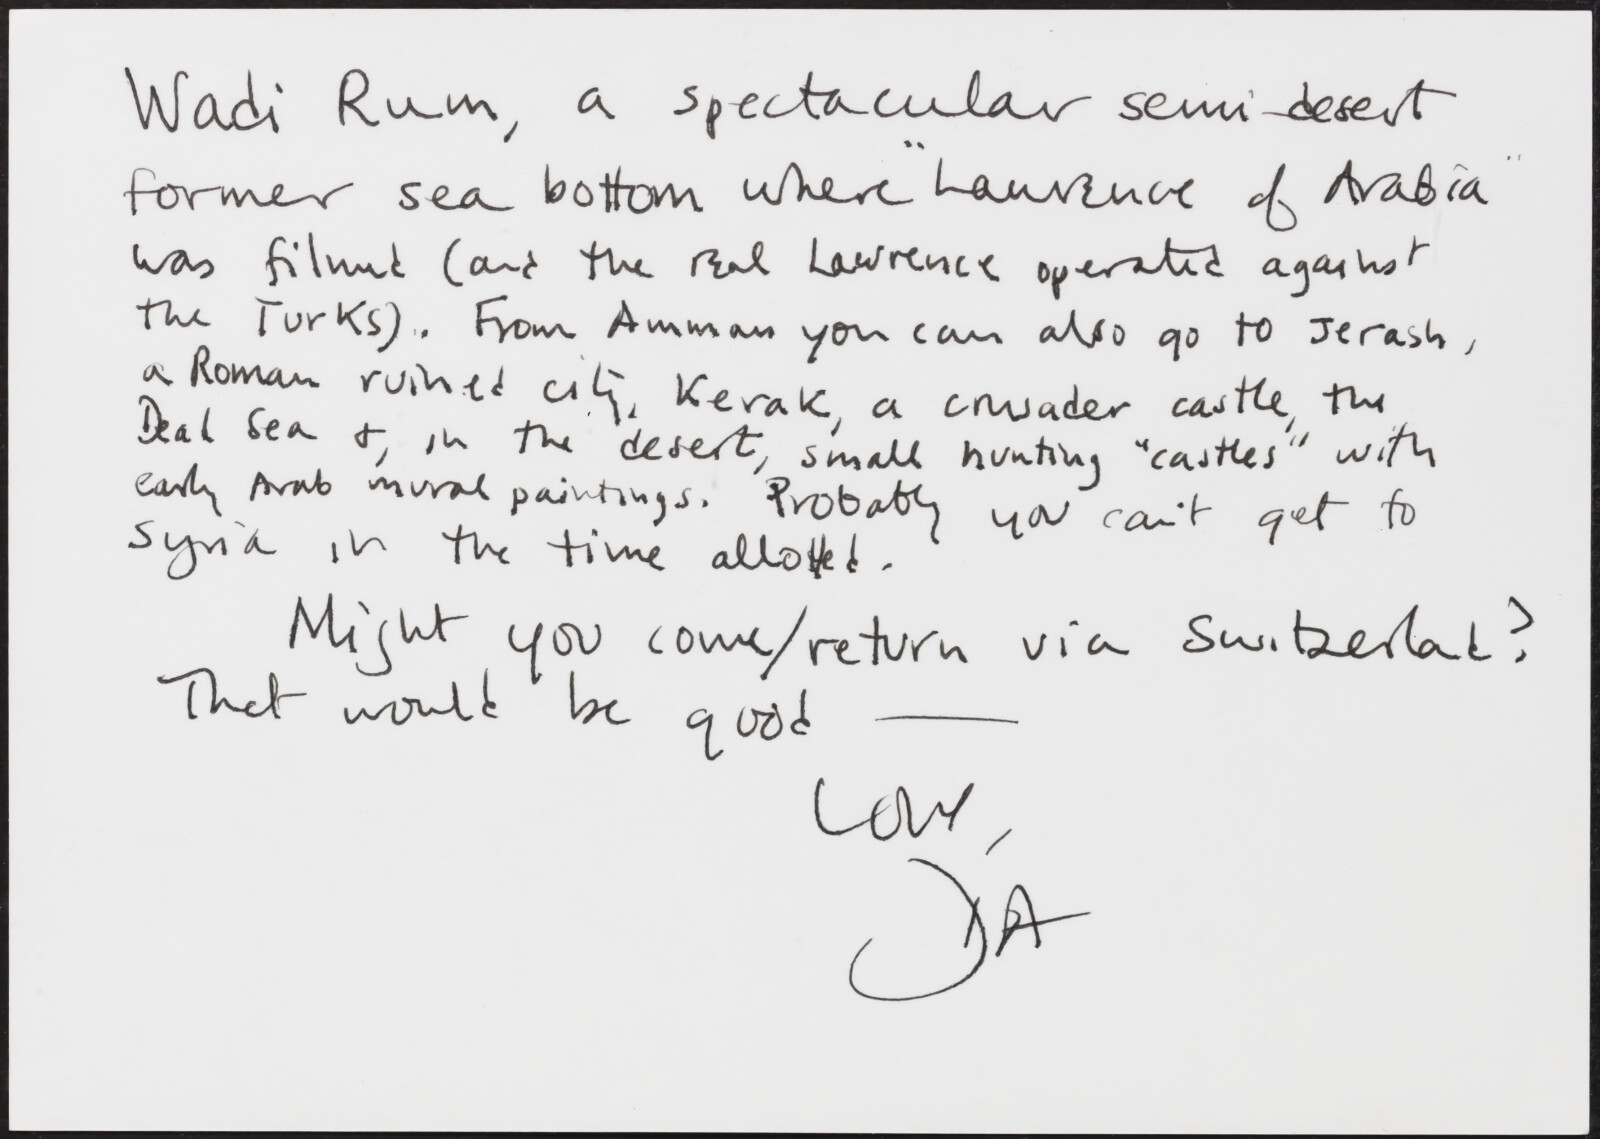 Wadi Rum, a spectacular semi-desert
former sea bottom where "Lawrence of Arabia"
was filmed (and the real Lawrence operated against
the Turks). From Amman you can also go to Jerash,
a Roman ruined city, Kerak, a crusader castle, the
Dead Sea &, in the desert, small hunting "castles" with
early Arab mural paintings. Probably you can't get to
Syria in the time allotted.
Might you come/return via Switzerland?
That would be good —
Love,
JA